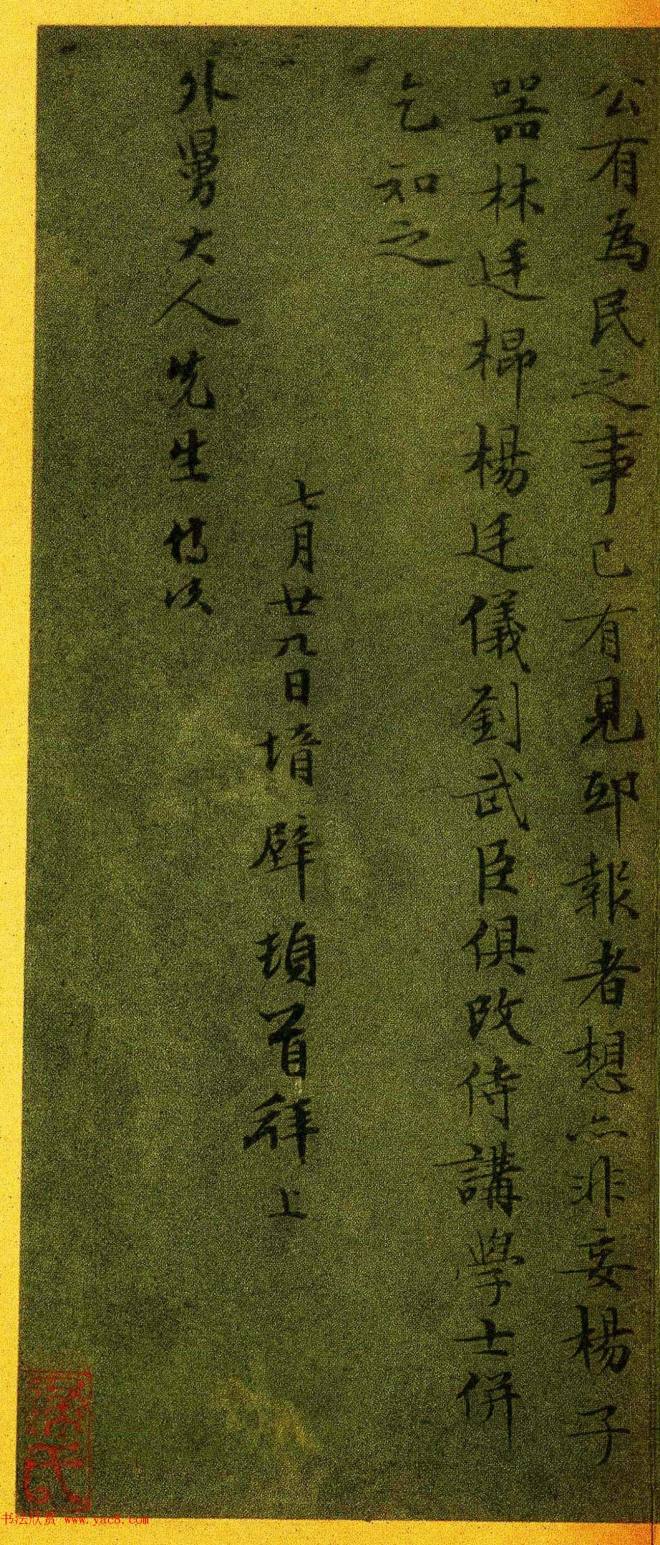 公有為民之事已有見邸報者想亦非妄楊子
器林廷㭿楊廷儀劉武臣俱改侍講學士併
乞知之
七月廿九日壻頓首拜上
外舅大人先生侍次
书法欣赏 www.yac8.com